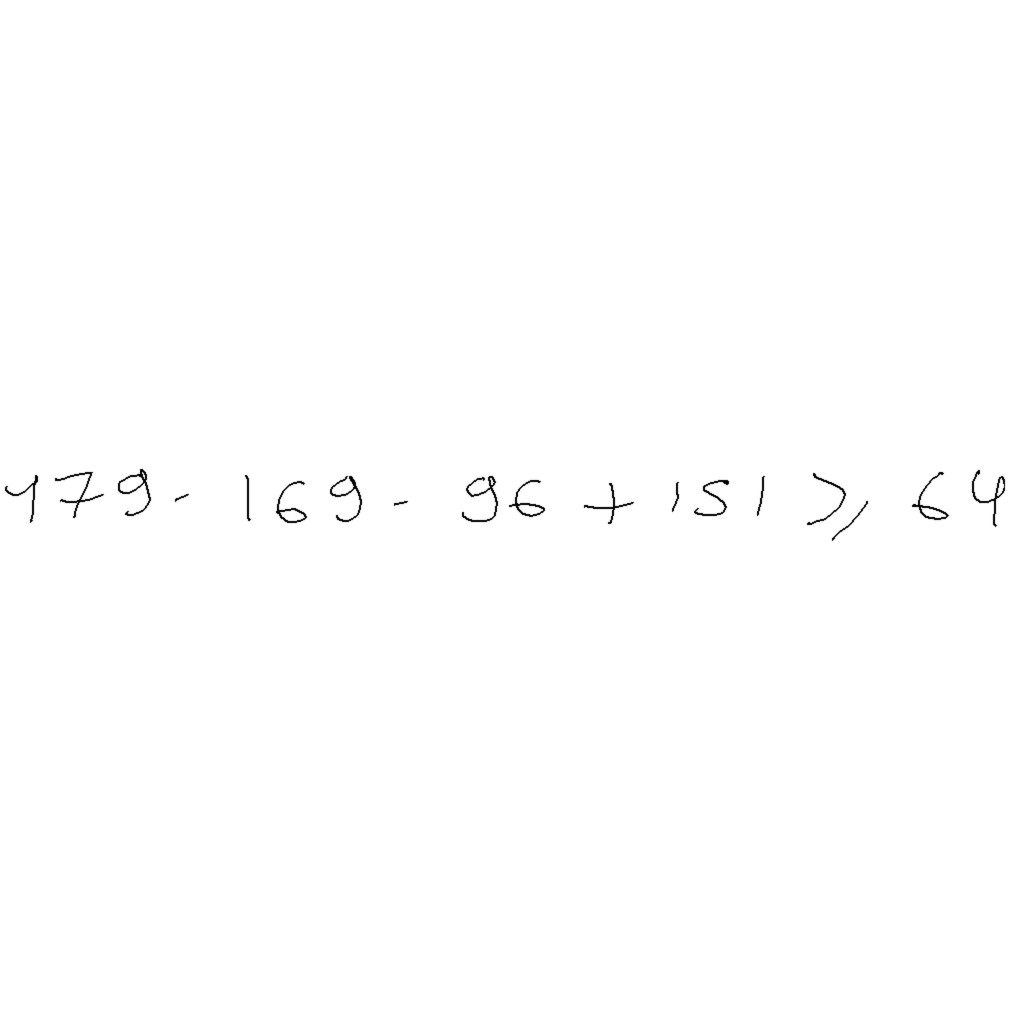 179 - 169 - 96 + 151 ⩾ 64